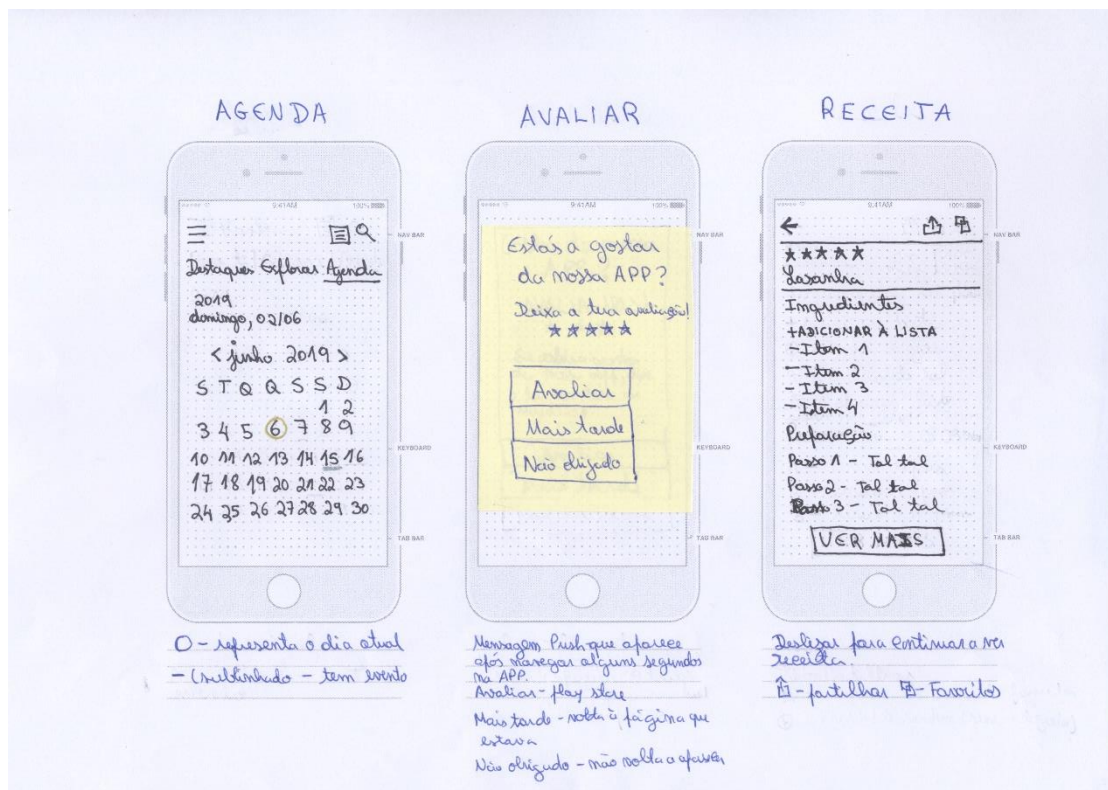 AGENDA
9:41AM
100%
NAV BAR
Destaques Explorar Agenda
2019
domingo, 02/06
< junho 2019 >
S T Q Q S S D
1 2
3 4 5 6 7 8 9
10 11 12 13 14 15 16
17 18 19 20 21 22 23
24 25 26 27 28 29 30
KEYBOARD
TAB BAR
O - representa o dia atual
- (sublinhado - tem evento
AVALIAR
9:41AM
100%
NAV BAR
Estás a gostar
da nossa APP?
Deixa a tua avaliação!
★★★★★
Avaliar
Mais tarde
Não obrigado
KEYBOARD
TAB BAR
Mensagem Push que aparece
após navegar alguns segundos
na APP.
Avaliar - play store
Mais tarde - volta à página que
estava
Não obrigado - não volta a aparecer
RECEITA
9:41AM
100%
NAV BAR
★★★★★
Lasanha
Ingredientes
+ADICIONAR À LISTA
- Item 1
- Item 2
- Item 3
- Item 4
Preparação
Passo 1 - Tal tal
Passo 2 - Tal tal
Passo 3 - Tal tal
VER MAIS
KEYBOARD
TAB BAR
Deslizar para continuar a ver
receita.
- partilhar - Favoritos